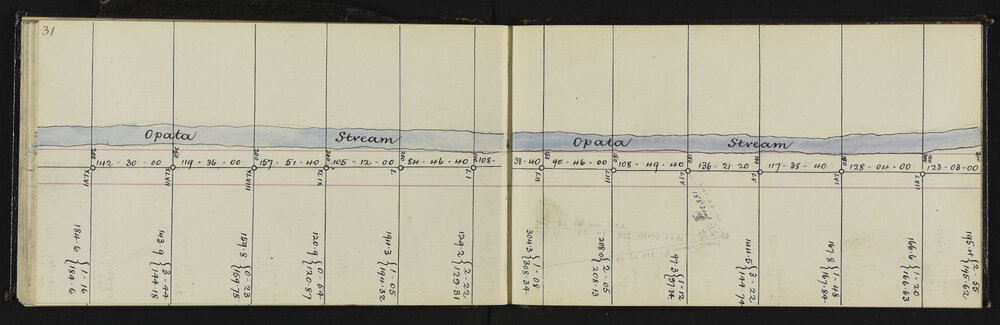 31
Opata Stream
Opata Stream
142-30-00 119-36-00 157-51-40 105-12-00 84-46-40 108-
33-40 90-46-00 108-49-40 136-21 20 117-38-40 128-04-00 123-03-00
XLVI XLVII XLVIII XLIX L LI
LII LIII LV LVI LVII
184.6 { 1-16
184.6
143.9 { 3-44
144.18
159.8 { 0-23
159.78
120.9 { 0-54
120.87
194.3 { 1-05
194.32
129.2 { 2-22
129.31
304.3 { 1-08
308.34
208.0 { 2-05
208.13
97.3 { 1-12
97.34
144.5 { 3-22
144.74
167.8 { 1-48
167.84
166.6 { 1-20
166.63
195.4 { 2-55
195.62